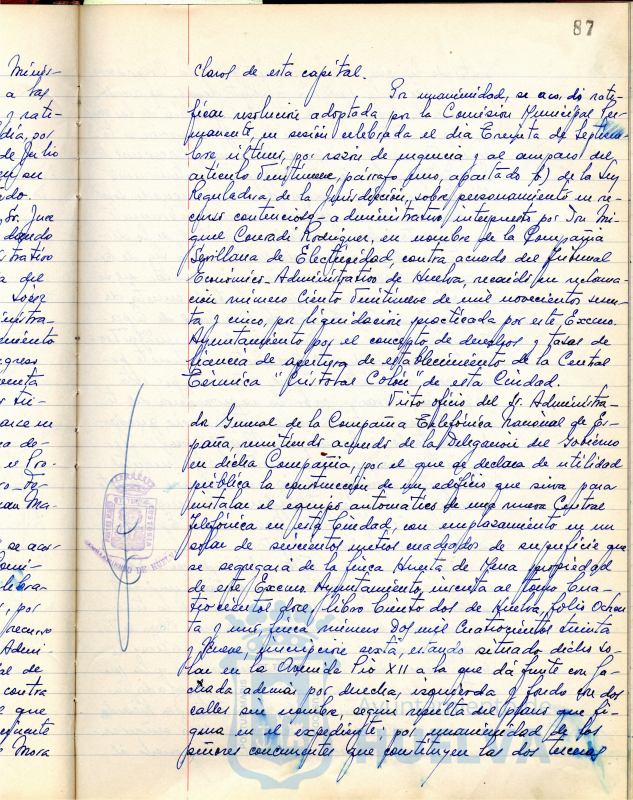 87
claros de esta capital.
Por unanimidad, se acordó rati-
ficar resolución adoptada por la Comisión Municipal Per-
manente, en sesión celebrada el día Treinta de Septiem-
bre último, por razón de urgencia y al amparo del
artículo Veintinueve, párrafo uno, apartado b) de la Ley
Reguladora de la Jurisdicción, sobre personamiento en re-
curso contencioso-administrativo interpuesto por Don Mi-
guel Conradi Rodríguez, en nombre de la Compañía
Sevillana de Electricidad, contra acuerdo del Tribunal
Económico-Administrativo de Huelva, recaído en reclama-
ción número Ciento Veintinueve de mil novecientos sesen-
ta y cinco, por liquidación practicada por este Excmo.
Ayuntamiento por el concepto de derechos y tasas de
licencia de apertura de establecimiento de la Central
Térmica "Cristobal Colón" de esta Ciudad.
Visto oficio del Sr. Administra-
dor General de la Compañía Telefónica Nacional de Es-
paña, remitiendo acuerdo de la Delegación del Gobierno
en dicha Compañía, por el que se declara de utilidad
pública la construcción de un edificio que sirva para
instalar el equipo automático de una nueva Central
Telefónica en esta Ciudad, con emplazamiento en un
solar de seiscientos metros cuadrados de superficie que
se segregará de la finca Huerta de Mena propiedad
de este Excmo. Ayuntamiento, inscrita al tomo Cua-
trocientos doce, libro Ciento dos de Huelva, folio Ochen-
ta y uno, finca número Dos mil Cuatrocientos treinta
y Nueve, inscripción sexta, estando situado dicho so-
lar en la Avenida Pío XII a la que dá frente con fa-
chada además por derecha, izquierda y fondo con dos
calles sin nombre, según resulta del plano que fi-
gura en el expediente; por unanimidad de los
señores concurrentes que constituyen las dos terceras